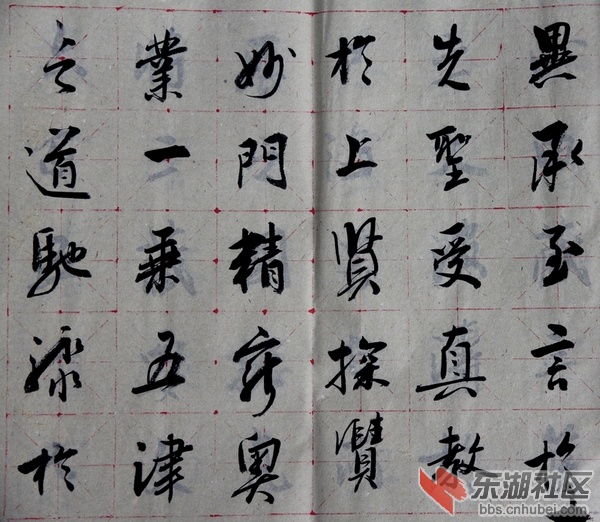 異承至言於
先聖受真教
於上賢探賾
妙門精窮奧
業一乘五律
之道馳驟於
东湖社区
bbs.cnhubei.com